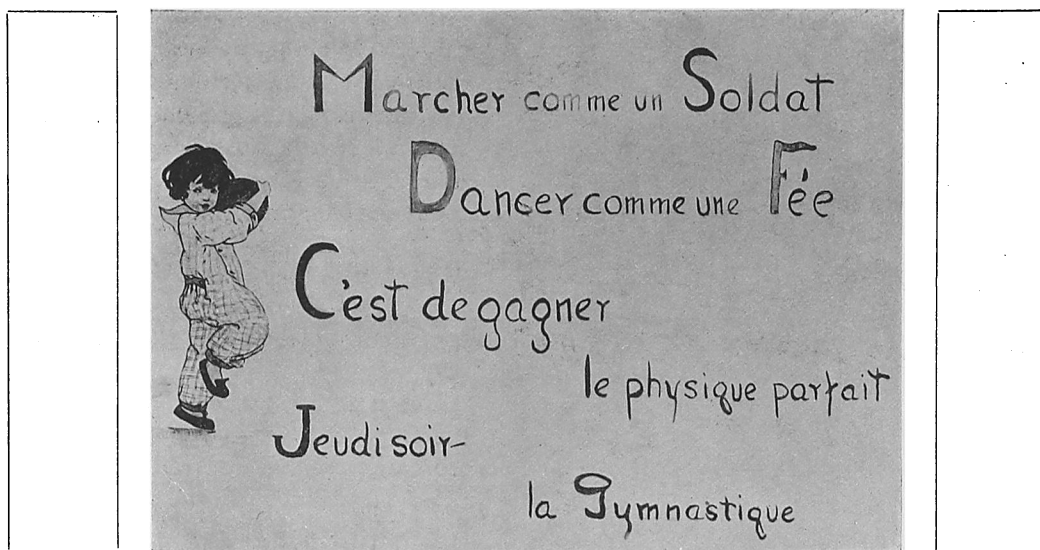 Marcher comme un Soldat
Dancer comme une Fée
C'est de gagner
le physique parfait
Jeudi soir-
la Gymnastique